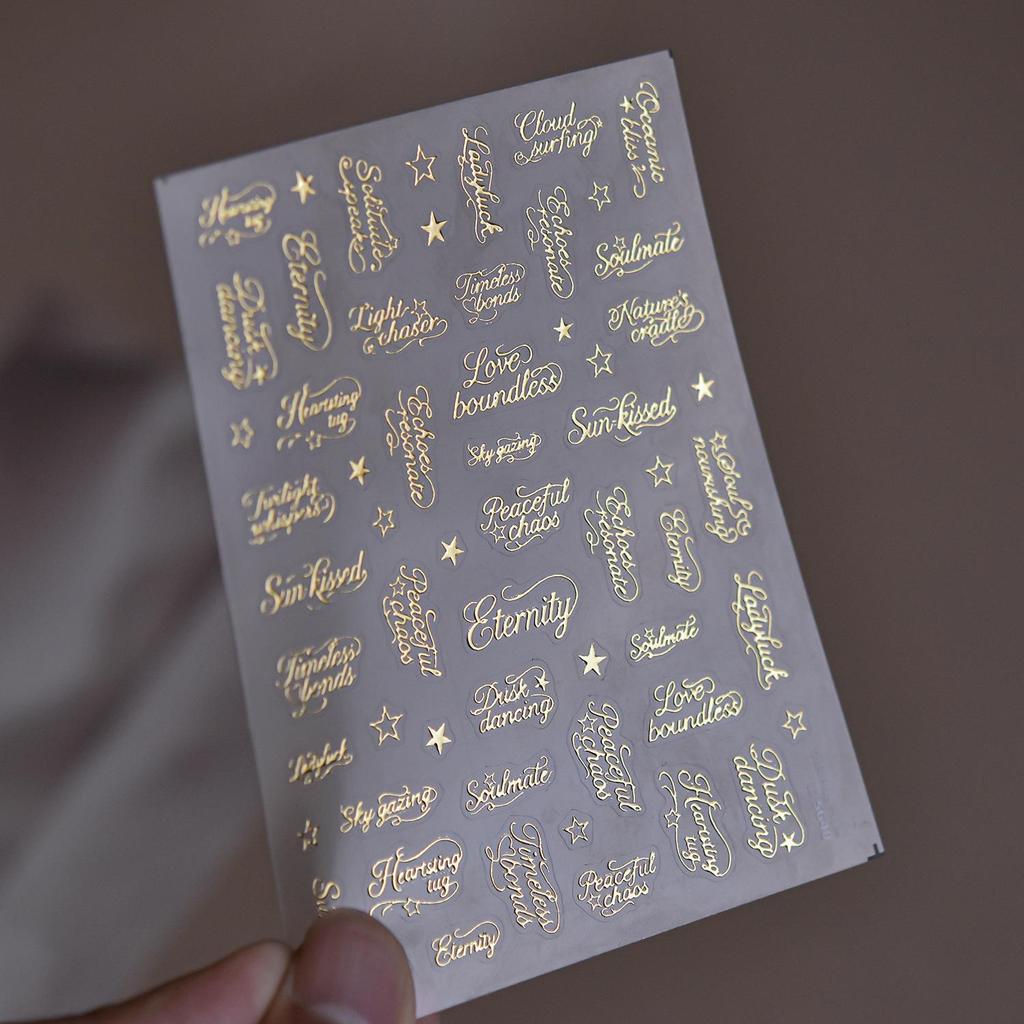 Cloud
surfing
Oceanic
bliss
Ladyluck
Solitude
speaks
Echoes
resonate
Eternity
Soulmate
Timeless
bonds
Dusk
dancing
Light
chaser
Nature's
cradle
Love
boundless
Heartsting
tug
Echoes
resonate
Sun-kissed
Sky gazing
Soul
nourishing
Twilight
whispers
Peaceful
chaos
Echoes
resonate
Eternity
Sun-kissed
Peaceful
chaos
Eternity
Soulmate
Ladyluck
Timeless
bonds
Dusk
dancing
Love
boundless
Ladyluck
Peaceful
chaos
Soulmate
Sky gazing
Hearsting
tug
Dusk
dancing
Heartsting
tug
Timeless
bonds
Peaceful
chaos
Eternity